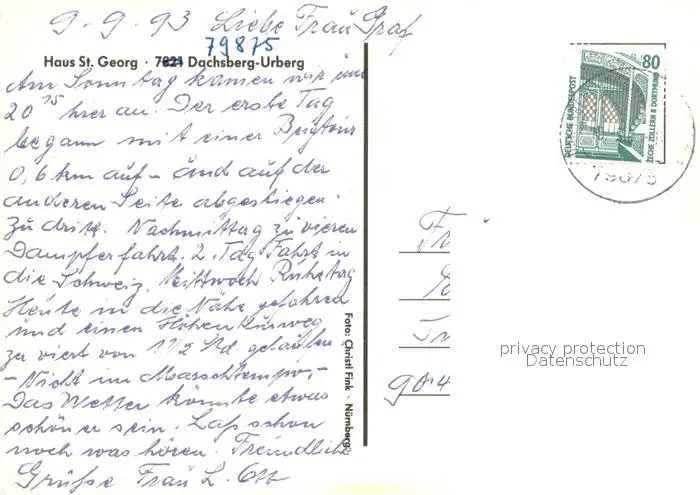 9-9-93 Liebe Frau Graf
79875
Haus St. Georg · 7821 Dachsberg-Urberg
Am Sonntag kamen wir um
20 15 hier an. Der erste Tag
begann mit einer Bergtour
0,6 km auf- und auf der
anderen Seite abgestiegen.
Zu dritt. Nachmittag zu vieren
Dampferfahrt. 2. Tag Fahrt in
die Schweiz. Mittwoch Ruhetag
Heute in die Nähe gefahren
und einen Höhenkurweg
zu viert von 1 1/2 Std gelaufen
- Nicht im Marschtempo,-
Das Wetter könnte etwas
schöner sein. Laß schon
noch was hören. Freundliche
Grüße Frau L. Ott
Foto: Christl Fink · Nürnberg
80
DEUTSCHE BUNDESPOST
ZECHE ZOLLERN II DORTMUND
79875
Fr
904
privacy protection
Datenschutz